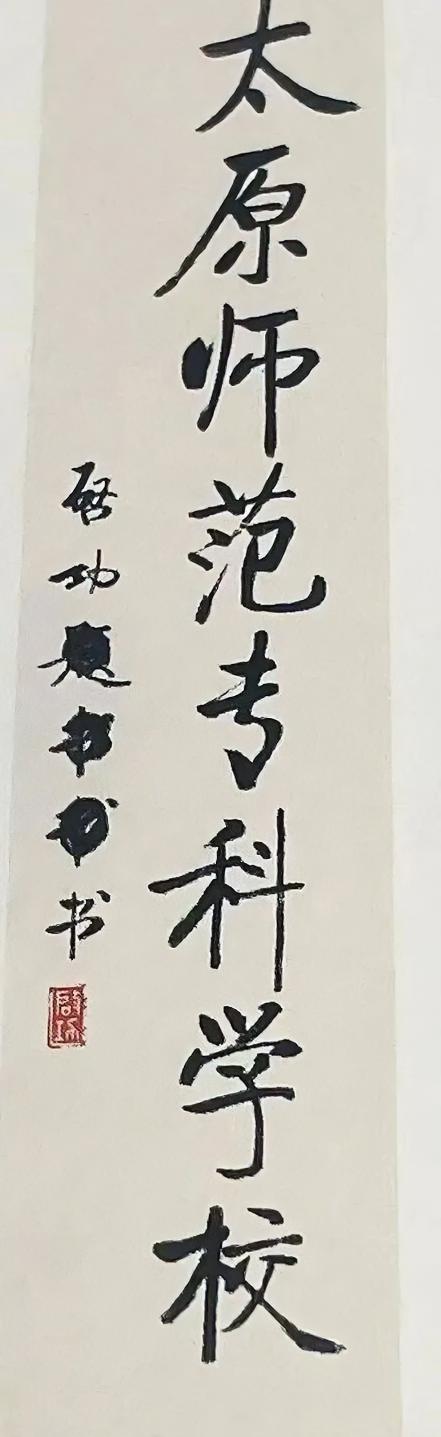 太原师范专科学校
启功题书